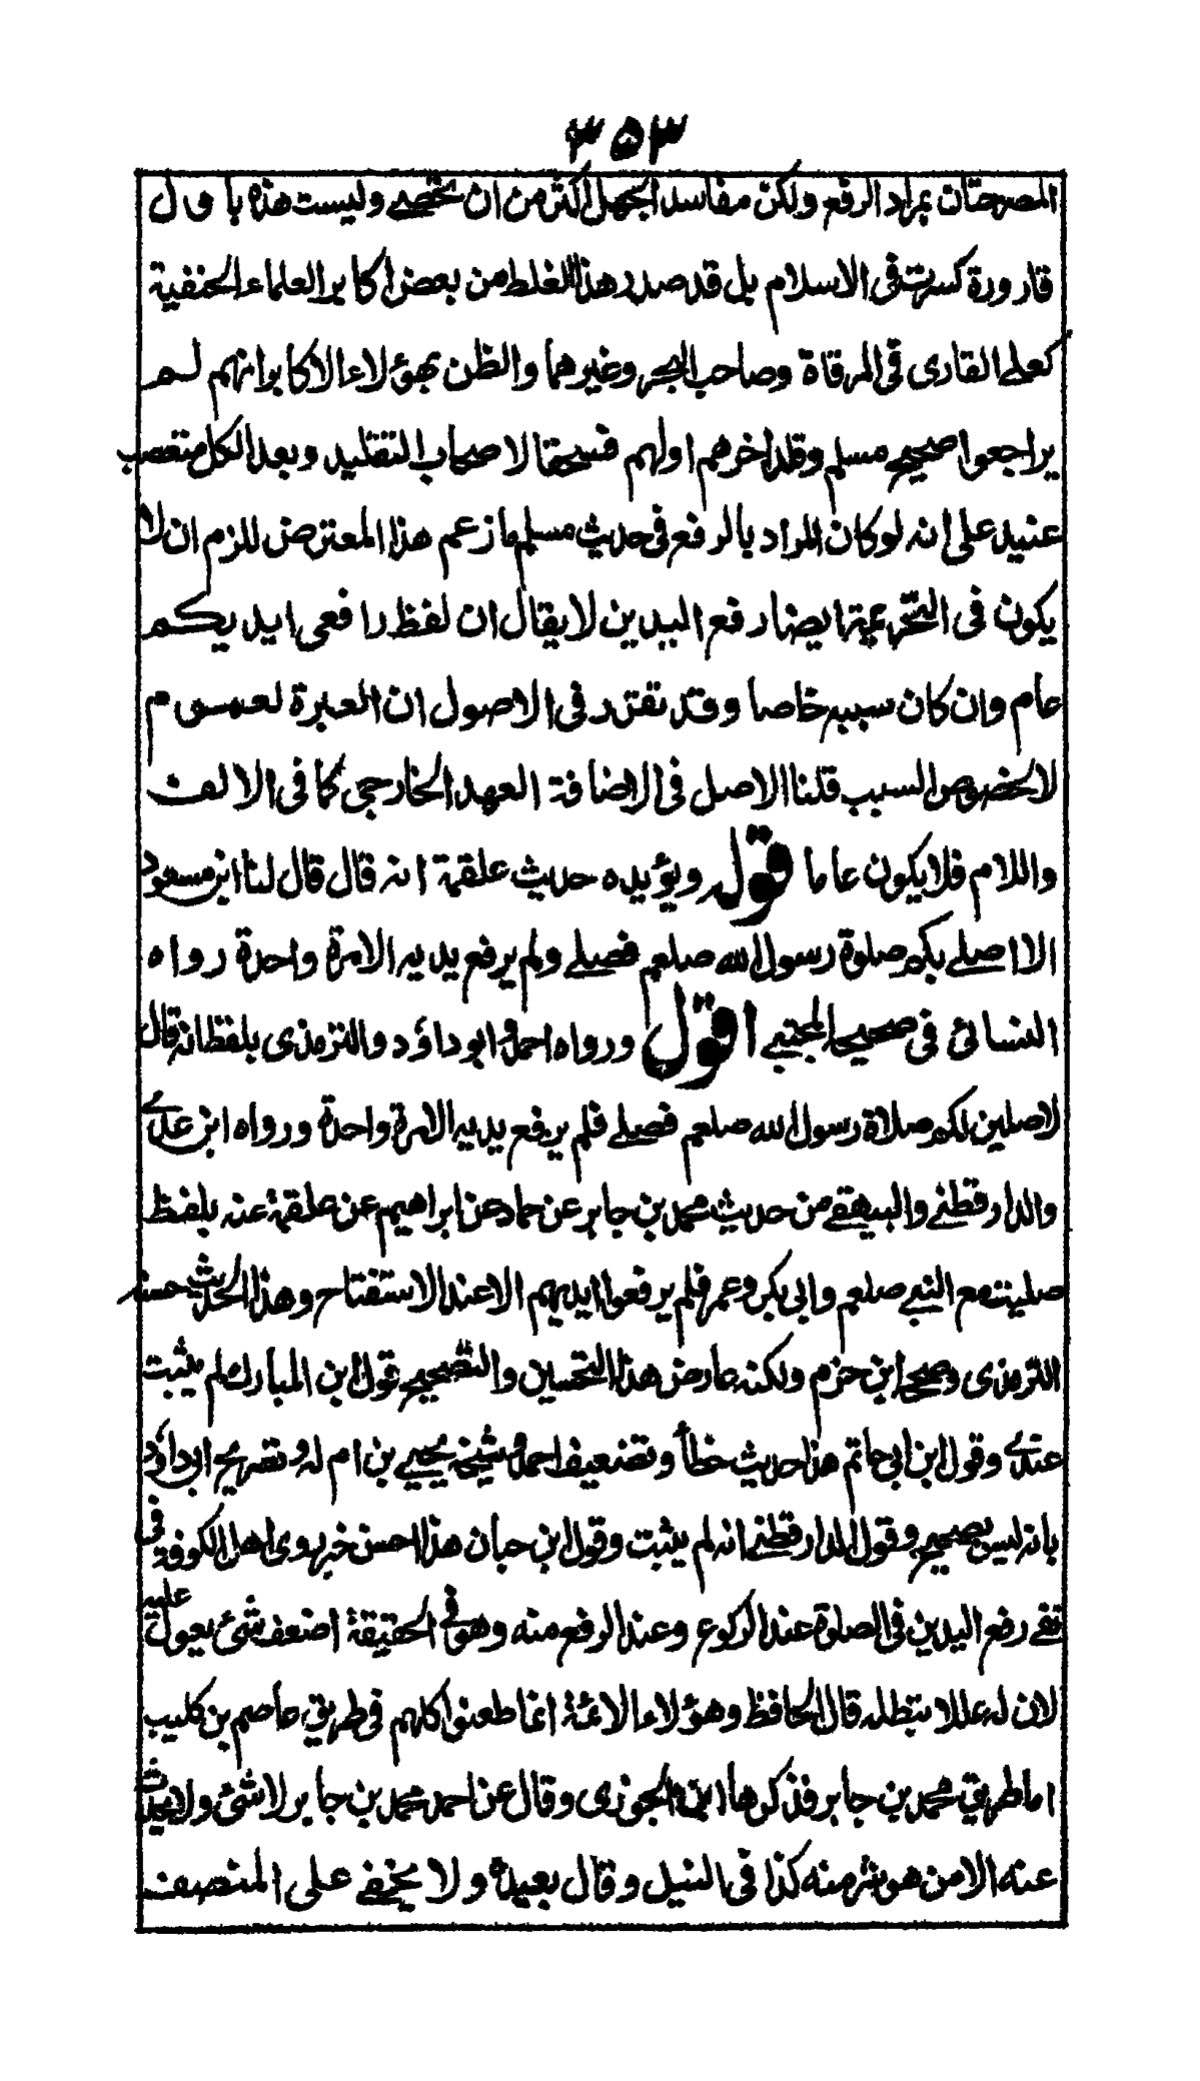 ٣٥٣
المصرحتان بمراد الرفع ولكن مفاسد الجهل اكثر من ان تخصے وليست هذه باول
قارورة كسرت فى الاسلام بل قد صدر هذا الغلط من بعض اكابر العلماء الحنفية
كعلے القارى فى المرقاة وصاحب البحر وغيرهما والظن بهؤلاء الاكابر انهم لم
يراجعوا صحيح مسلم وقلد اخرهم اولهم فسحقا لاصحاب التقليد وبعد الكل متعصب
عنيد على انه لو كان المراد بالرفع فى حديث مسلم ما زعم هذا المعترض للزم ان لا
يكون فى التحريمة ايضا رفع اليدين لا يقال ان لفظ رافعى ايديكم
عام وان كان سببه خاصا وقد تقرر فى الاصول ان العبرة لعموم
لا لخصوص السبب قلنا الاصل فى الاضافة العهد الخارجى كما فى الالف
واللام فلا يكون عاما قوله ويؤيده حديث علقمة انه قال قال لنا ابن مسعود
الا اصلے بكم صلوة رسول الله صلعم فصلے ولم يرفع يديه الا مرة واحدة رواه
النسائى فى صحيح المجتبے اقول ورواه احمد وابو داؤد والترمذى بلفظ انه قال
لاصلين لكم صلاة رسول الله صلعم فصلے فلم يرفع يديه الا مرة واحدة ورواه ابن عدے
والدارقطنے والبيهقے من حديث محمد بن جابر عن حماد عن ابراهيم عن علقمة عنه بلفظ
صليت مع النبے صلعم وابى بكر وعمر فلم يرفعوا ايديهم الا عند الاستفتاح وهذا الحديث حسنه
الترمذى وصححه ابن حزم ولكنه عارض هذا التحسين والتصحيح قول ابن المبارك لم يثبت
عندے وقول ابن ابى حاتم هذا حديث خطأ وتضعيف احمد وشيخه يحيے بن ادم له وتصريح ابى داؤد
بانه ليس بصحيح وقول الدارقطنے انه لم يثبت وقول ابن حبان هذا احسن خبر روى اهل الكوفة فى
نفے رفع اليدين فى الصلوة عند الركوع وعند الرفع منه وهو فى الحقيقة اضعف شئ يعول عليه
لان له عللا تبطله قال الحافظ وهؤلاء الائمة انما طعنوا كلهم فى طريق عاصم بن كليب
اما طريق محمد بن جابر فذكرها ابن الجوزى وقال عن احمد محمد بن جابر لا شئ ولا يحدث
عنه الا من هو شر منه كذا فى النيل وقال بعيده ولا يخفے على المنصف